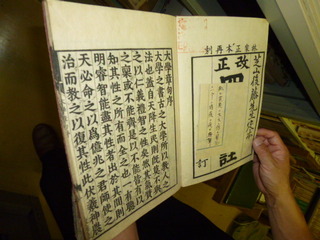 林家正本再刻
芝山後藤先生
改正
四
訂
大學章句序
大學之書古之大學所以教人之
法也蓋自天降生民則既莫不與
之以仁義禮智之性矣然其氣質
之稟或不能齊是以不能皆有以
知其性之所有而全之也一有聰
明睿智能盡其性者出於其閒則
天必命之以爲億兆之君師使之
治而教之以復其性此伏羲神農